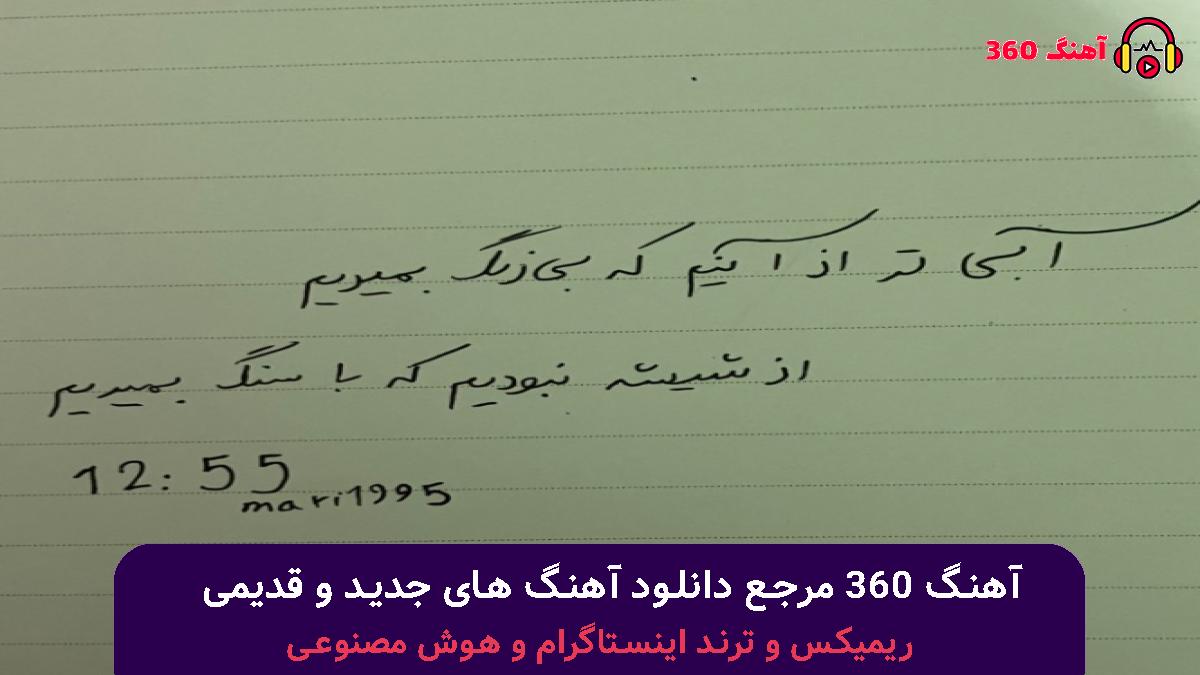 آهنگ 360
آبی تر از آنیم که بی رنگ بمیریم
از شیشه نبودیم که با سنگ بمیریم
12:55
mari1995
آهنگ 360 مرجع دانلود آهنگ های جدید و قدیمی
ریمیکس و ترند اینستاگرام و هوش مصنوعی